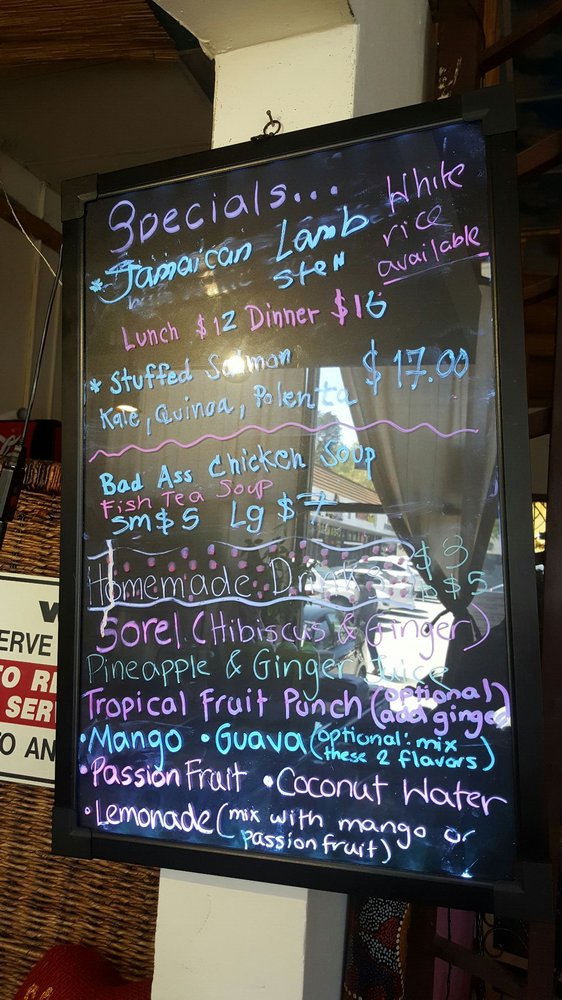 Specials...
White
rice
available
* Jamaican Lamb
Stew
Lunch $12 Dinner $16
* Stuffed Salmon $17.00
Kale, Quinoa, Polenta
Bad Ass Chicken Soup
Fish Tea Soup
Sm $5 Lg $7
Homemade Drinks $3
$5
Sorel (Hibiscus & Ginger)
Pineapple & Ginger Juice
Tropical Fruit Punch (optional)
add ginger
• Mango • Guava (optional: mix
these 2 flavors)
• Passion Fruit • Coconut Water
• Lemonade (mix with mango or
passion fruit)
W
SERVE
TO RE
SERV
TO AN